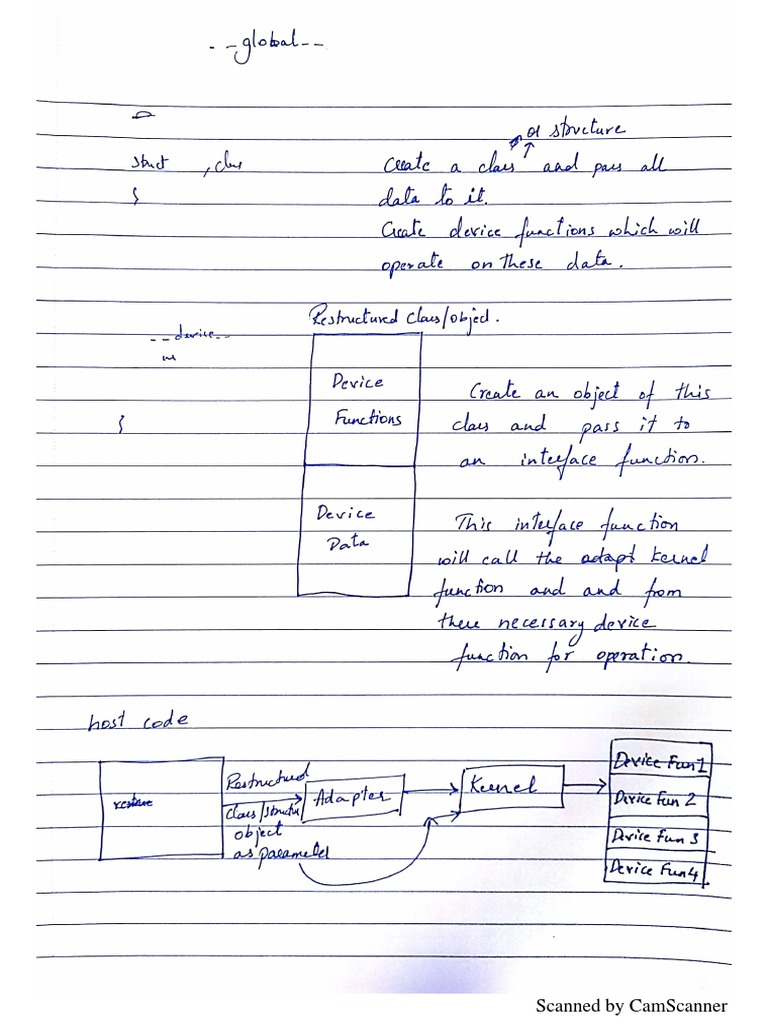 --global--
or structure
struct , clas
Create a class and pass all
{
data to it.
Create device functions which will
operate on these data.
Restructured class/object.
--device--
Device
Functions
Create an object of this
class and pass it to
an interface function.
{
Device
Data
This interface function
will call the adapt kernel
function and and from
there necessary device
function for operation.
host code
Restructured
class/structur
object
as parameter
Adapter
Kernel
Device Fun1
Device Fun 2
Device Fun 3
Device Fun4
Scanned by CamScanner